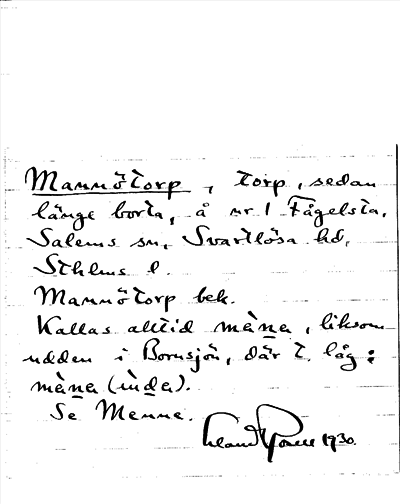 Mannötorp, torp, sedan
länge borta, å nr 1 Fågelsta,
Salems sn, Svartlösa hd,
Sthlms l.
Mannötorp bek.
Kallas alltid mèna, liksom
udden i Bornsjön, där t. låg:
mèna (ìnda).
Se Menna.
1930.